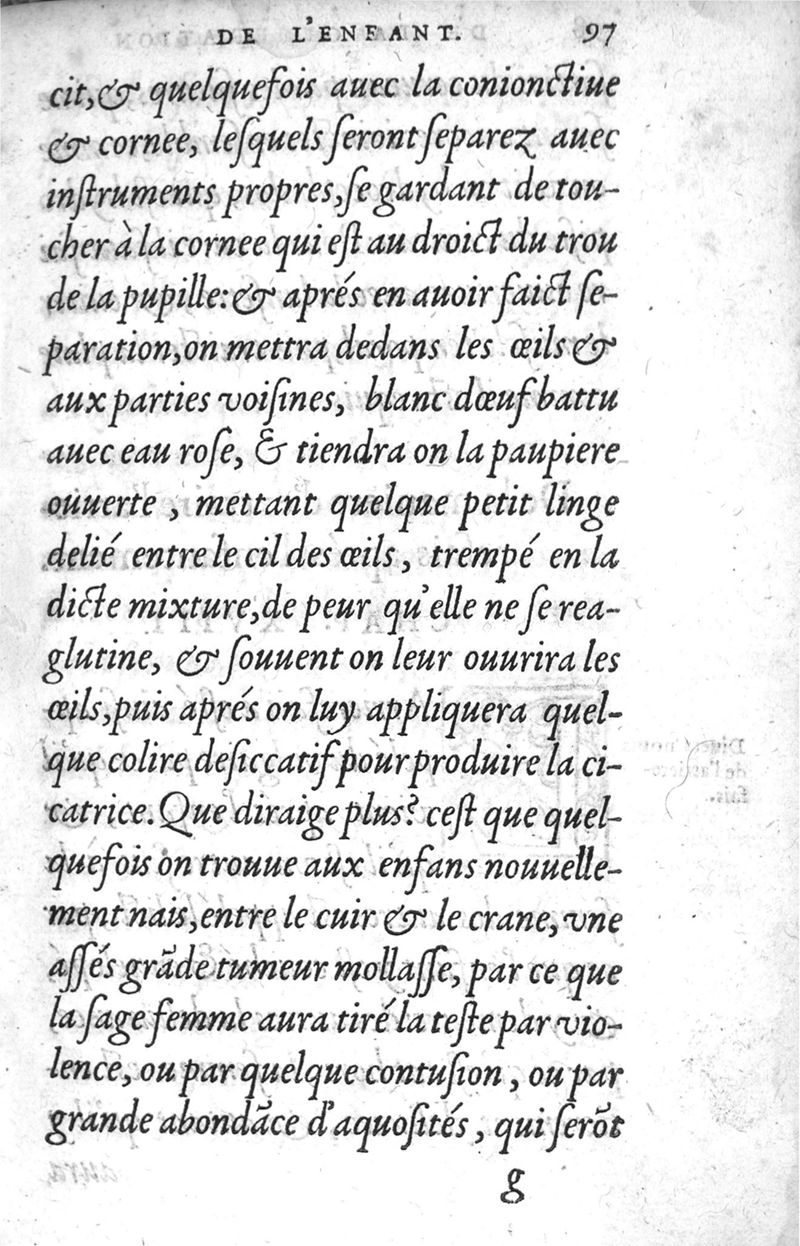 DE L'ENFANT. 97
cit,& quelquefois auec la conionctiue
& cornee, leſquels ſeront ſeparez auec
inſtruments propres,ſe gardant de tou-
cher à la cornee qui eſt au droict du trou
de la pupille:& aprés en auoir faict ſe-
paration,on mettra dedans les œils &
aux parties voiſines, blanc dœuf battu
auec eau roſe, & tiendra on la paupiere
ouuerte , mettant quelque petit linge
delié entre le cil des œils , trempé en la
dicte mixture,de peur qu'elle ne ſe rea-
glutine, & ſouuent on leur ouurira les
œils,puis aprés on luy appliquera quel-
que colire deſiccatif pour produire la ci-
catrice. Que diraige plus? ceſt que quel-
quefois on trouue aux enfans nouuelle-
ment nais,entre le cuir & le crane, vne
aſſés grāde tumeur mollaſſe, par ce que
la ſage femme aura tiré la teſte par vio-
lence, ou par quelque contuſion , ou par
grande abondāce d'aquoſités , qui ſerōt
g